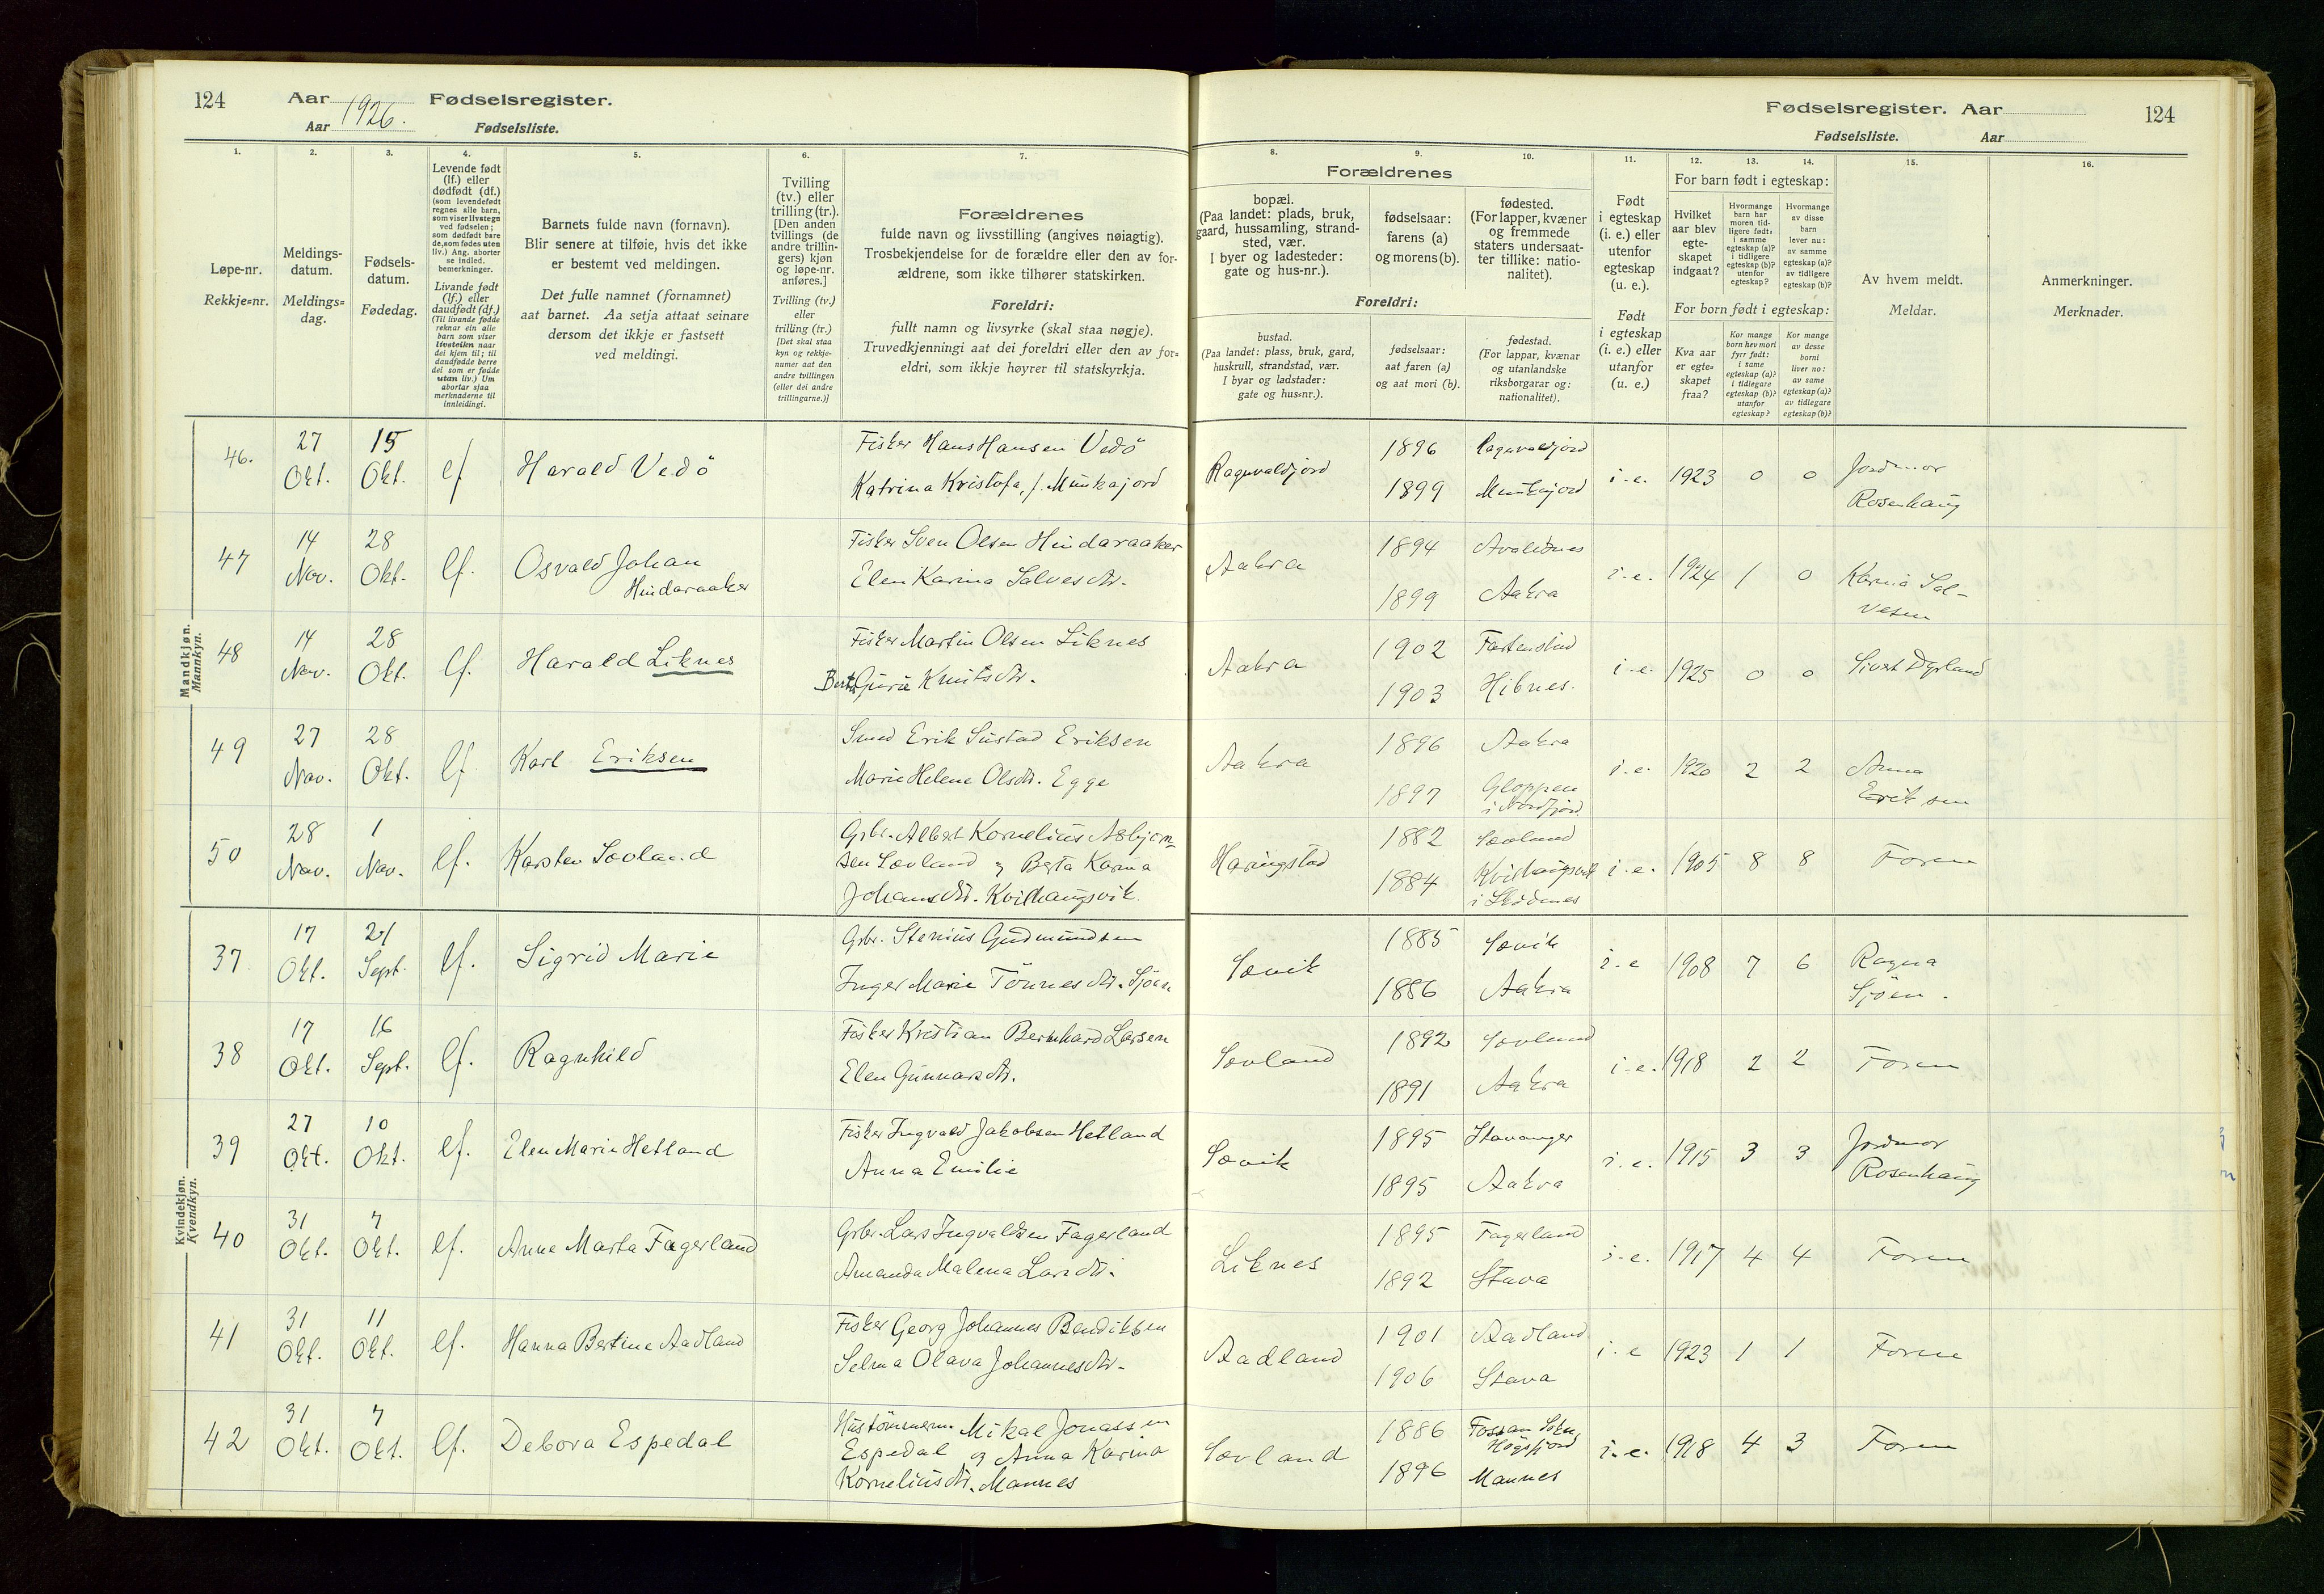 124 Aar 1926. Fødselsregister.
Aar Fødselsliste.
Fødselsregister. Aar 124
Fødselsliste. Aar
1. 2. 3. 4. 5. 6. 7. 8. 9. 10. 11. 12. 13. 14. 15. 16.
Løpe-nr.
Rekkje-nr.
Meldings-
datum.
Meldings-
dag.
Fødsels-
datum.
Fødedag.
Levende født
(lf.) eller
dødfødt (df.)
(som levendefødt
regnes alle barn,
som viser livstegn
ved fødselen;
som dødfødt bare
de, som fødes uten
liv.) Ang. aborter
se indled.
bemerkninger.
Livande født
(lf.) eller
daudfødt (df.)
(Til livande fødde
reknar ein alle
barn som viser
livsteikn naar
dei kjem til; til
daudfødde berre
dei som er fødde
utan liv.) Um
abortar sjaa
merknaderne til
innleidingi.
Barnets fulde navn (fornavn).
Blir senere at tilføie, hvis det ikke
er bestemt ved meldingen.
Det fulle namnet (fornamnet)
aat barnet. Aa setja attaat seinare
dersom det ikkje er fastsett
ved meldingi.
Tvilling
(tv.) eller
trilling (tr.).
[Den anden
tvillings (de
andre trillin-
gers) kjøn
og løpe-nr.
anføres.]
Tvilling (tv.)
eller
trilling (tr.)
[Det skal staa
kyn og rekkje-
numer aat den
andre tvillingen
(eller dei andre
trillingarne.)]
Forældrenes
fulde navn og livsstilling (angives nøiagtig).
Trosbekjendelse for de forældre eller den av for-
ældrene, som ikke tilhører statskirken.
Foreldri:
fullt namn og livsyrke (skal staa nøgje).
Truvedkjenningi aat dei foreldri eller den av for-
eldri, som ikkje høyrer til statskyrkja.
Forældrenes
bopæl.
(Paa landet: plads, bruk,
gaard, hussamling, strand-
sted, vær.
I byer og ladesteder:
gate og hus-nr.).
fødselsaar:
farens (a)
og morens (b).
fødested.
(For lapper, kvæner
og fremmede
staters undersaat-
ter tillike: natio-
nalitet).
Foreldri:
bustad.
(Paa landet: plass, bruk, gard,
huskrull, strandstad, vær.
I byar og ladstader:
gate og hus-nr.).
fødselsaar:
aat faren (a)
og aat mori (b).
fødestad.
(For lappar, kvænar
og utanlandske
riksborgarar og:
nationalitet).
Født
i egteskap
(i. e.) eller
utenfor
egteskap
(u. e.).
Født
i egteskap
(i. e.) eller
utanfor
(u. e.)
For barn født i egteskap:
Hvilket
aar blev
egte-
skapet
indgaat?
Hvormange
barn har
moren tid-
ligere født:
i samme
egteskap (a)?
i tidligere
egteskap (b)?
utenfor
egteskap?
Hvormange
av disse
barn
lever nu:
av samme
egteskap (a)?
av tidligere
egteskap (b)?
For born født i egteskap:
Kva aar
er egte-
skapet
fraa?
Kor mange
born hev mori
fyrr født:
i same
egteskap (a)?
i tidlegare
egteskap (b)?
utanfor
egteskap?
Kor mange
av desse
borni
liver no:
av same
egteskap (a)?
av tidlegare
egteskap (b)?
Av hvem meldt.
Meldar.
Anmerkninger.
Merknader.
Mandkjøn.
Mannkyn.
46. 27 Okt. 15 Okt. lf Harald Vedö
Fisker Hans Hansen Vedö
Katrina Kristofa, f. Munkajord
Ragnvaldjord 1896 Ragnvaldjord
1899 Munkajord i.e. 1923 0 0 Jordmor
Rosenhaug
47 14 Nov. 28 Okt. lf. Osvald Johan
Hindaraaker
Fisker Sven Olsen Hindaraaker
Elen Karina Salvesdtr.
Aakra 1894 Avaldsnes
1899 Aakra i.e. 1924 1 0 Karnia Sal-
vesen
48 14 Nov. 28 Okt. lf. Harald Liknes
Fisker Martin Olsen Liknes
Berta Gurie Knutsdtr.
Aakra 1902
1903 Hibnes. i.e. 1925 0 0 Sivert Dyrland
49 27 Nov. 28 Okt. lf Karl Eriksen
Smed Erik Sustad Eriksen
Marie Helene Olsdtr. Egge
Aakra 1896 Aakra
1897 Gloppen
i Nordfjord i.e. 1920 2 2 Anna
Eriksen
50 28 Nov. 1 Nov. lf. Karsten Sovland
Grbr. Albert Kornelius Asbjørn-
sen Sovland og Berta Karina
Johansdtr. Kvilhaugsvik.
Haringstad 1882 Sovland
1884 Kvilhaugsvik
i Skudenes i.e. 1905 8 8 Faren
Kvindekjøn.
Kvendkyn.
37 17 Okt. 27 Sept. lf. Sigrid Marie
Grbr. Stenius Gudmundsen
Inger Marie Tönnesdtr. Sjöen
Sævik 1885 Sævik
1886 Aakra i.e 1908 7 6 Ragna
Sjöen.
38 17 Okt. 16 Sept. lf. Ragnhild
Fisker Kristian Bernhard Larsen
Elen Gunnarsdtr.
Sovland 1892 Sovland
1891 Aakra i.e. 1918 2 2 Faren
39 27 Okt. 10 Okt. lf. Elen Marie Hetland
Fisker Ingvald Jakobsen Hetland
Anna Emilie
Sævik 1895 Stavanger
1895 Aakra i.e. 1915 3 3 Jordmor
Rosenhaug
40 31 Okt. 7 Okt. lf. Anne Marta Fagerland
Grbr. Lars Ingvaldsen Fagerland
Amanda Malena Larsdtr.
Liknes 1895 Fagerland
1892 Stava i.e. 1917 4 4 Faren
41 31 Okt. 11 Okt. lf. Hanna Bertine Aadland
Fisker Georg Johannes Bendiksen
Selma Olava Johannesdtr.
Aadland 1901 Aadland
1906 Stava i.e 1923 1 1 Faren
42 31 Okt. 7 Okt. lf. Debora Espedal
Hustömmerm. Mikal Jonassen
Espedal og Anna Karina
Korneliusdtr. Mannes
Sovland 1886 Fossan Sokn,
Högsfjord
1896 Mannes i.e. 1918 4 3 Faren